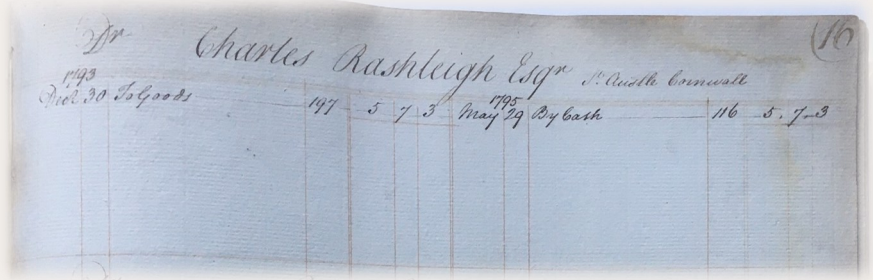 Dr Charles Rashleigh Esqr St. Austle Cornwall (16
1793 1795
Decr 30 To Goods 197 5 7 3 May 29 By Cash 116 5 . 7 . 3